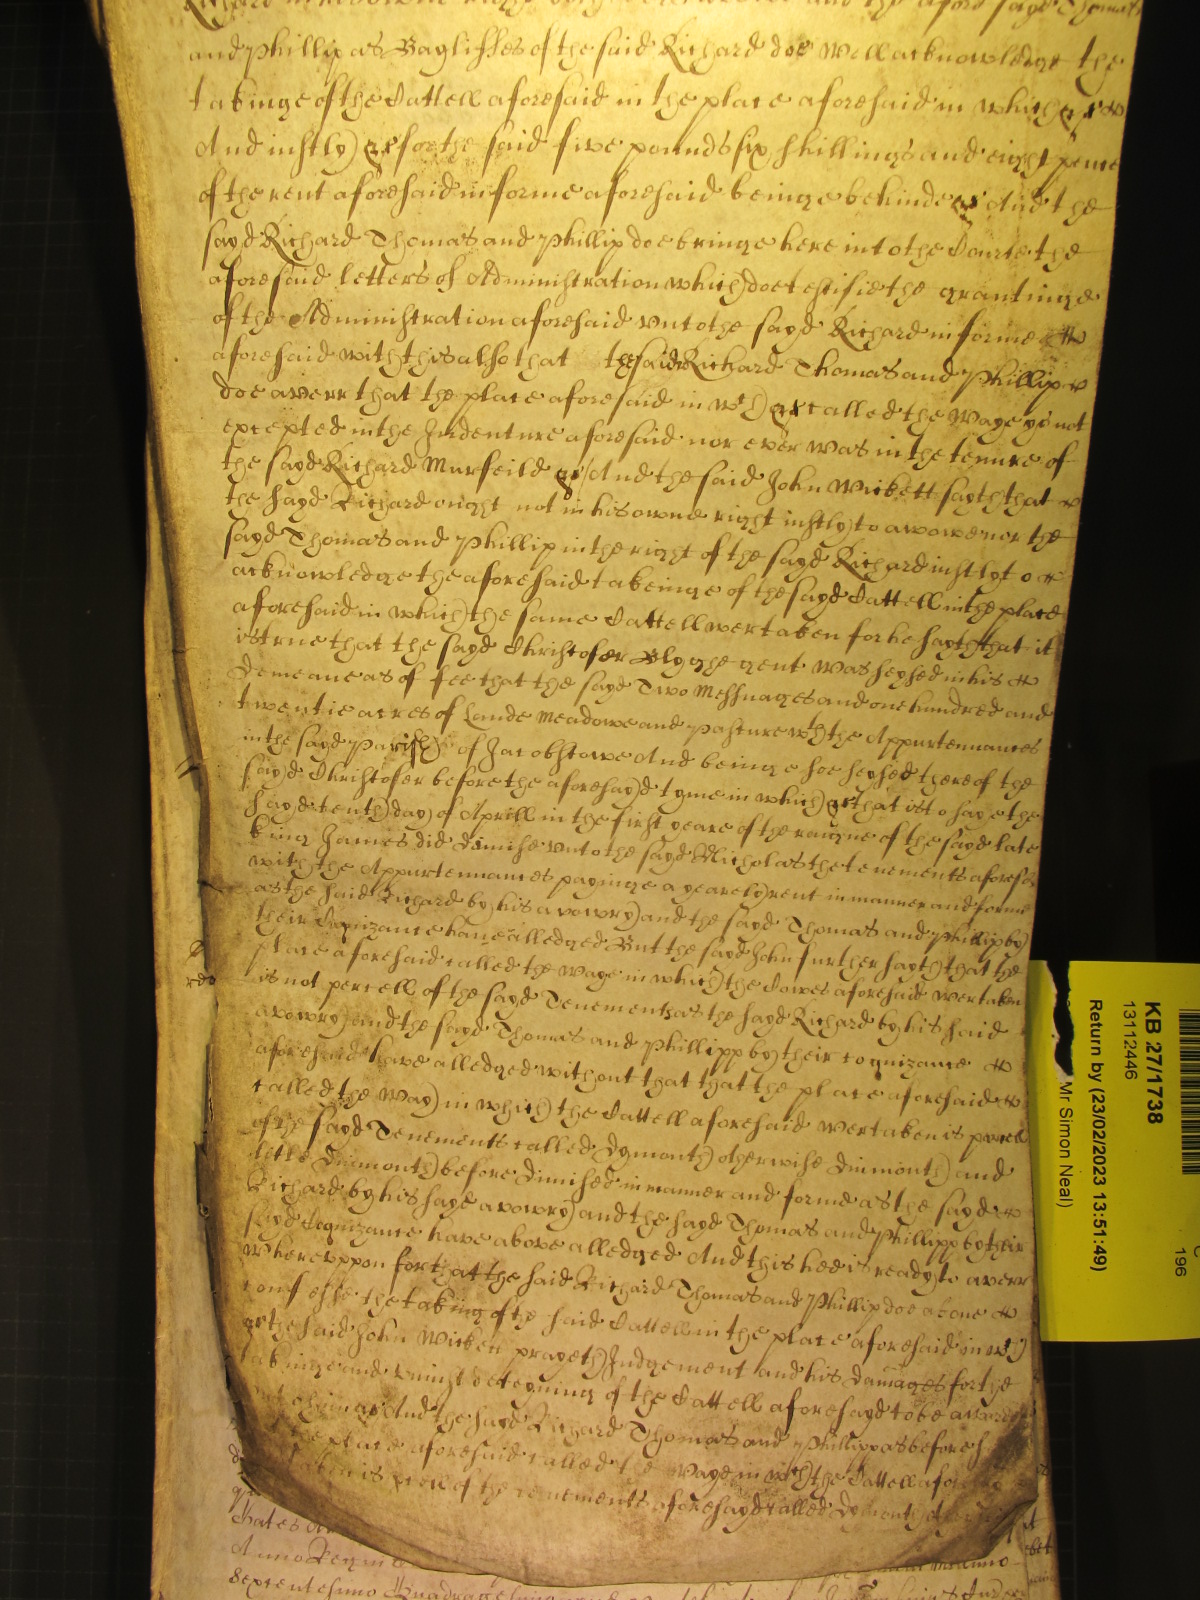 and Phillip as Bagliffes of the said Richard doe well acknowledge the
takinge of the Cattell aforesaid in the place aforesaid in which &c
And iustly &c for the said five pounds six shillings and eight pence
of the rent aforesaid in forme aforesaid beinge behinde &c And the
sayd Richard Thomas and Phillip doe bringe here into the Courte the
aforesaid letters of Administration which doe testifie the grantinge
of the Administration aforesaid vnto the sayd Richard in forme
aforesaid with this also that the said Richard Thomas and Phillip
doe averr that the place aforesaid in wch &c called the Waye ys not
excepted in the Indenture aforesaid nor ever was in the tenure of
the sayd Richard Murfeild &c And the said John Wickett sayth that
the sayd Richard ought not in his owne right iustly to avowe nor the
sayd Thomas and Phillip in the right of the sayd Richard iustly to
acknowledge the aforesaid takeinge of the sayd Cattell in the place
aforesaid in which the same Cattell wer taken for he sayth that it
is true that the sayd Christofer Blyghe gent was seysed in his
demeane as of fee that the sayd Two Messuages and one hundred and
twentie acres of Lande Meadowe and pasture wth the Appurtennances
in the sayd parish of Jacobstowe And beinge soe seysed thereof the
sayd Christofer before the aforesayd tyme in which &c that is to saye the
sayd tenth day of Aprill in the first yeare of the raigne of the sayd late
king James did dimise vnto the sayd Nicholas the tenements aforesd
with the Appurtennances payinge a yearely rent in manner and forme
as the said Richard by his avowry and the sayd Thomas and Phillip by
their Cognizance have alledged But the sayd John further sayth that the
place aforesaid called the Waye in which the Cowes aforesaid wer taken
is not percell of the sayd Tenements as the sayd Richard by his said
avowry and the sayd Thomas and Phillipp by their cognizance
aforesaid have alledged without that that the place aforesaid
called the Way in which the Cattell aforesaid wer taken is percell
of the sayd Tenements called Dymonth otherwise Dinmonth and
litle Dinmonth before dimised in manner and forme as the sayd
Richard by his sayd avowry and the sayd Thomas and Phillipp by their
sayd Cognizance have above alledged And this hee is ready to averr
Wherevppon for that the said Richard Thomas and Phillip doe above
confesse the taking of the said Cattell in the place aforesaid in wch
&c the said John Wicken prayeth Judgement and his damages for the
takinge and vniust deteyning of the Cattell aforesayd to be
And the sayd Richard Thomas and Phillipp as before
the place aforesaid called the Waye in wch the Cattell
taken is prcell of the tenements aforesayd called Dymonth
KB 27/1738
13112446
Return by (23/02/2023 13:51:49)
Mr Simon Neal)
196